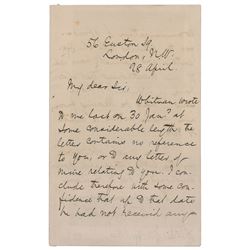 56 Euston Sq.
London, N.W.
28 April.
My dear Sir,
Whitman wrote
to me last on 30 Jan? at
some considerable length: the
letter contains no reference
to you, or to any letter of
mine relating to you. I con-
clude therefore with some con-
fidence that up to that date
he had not received any